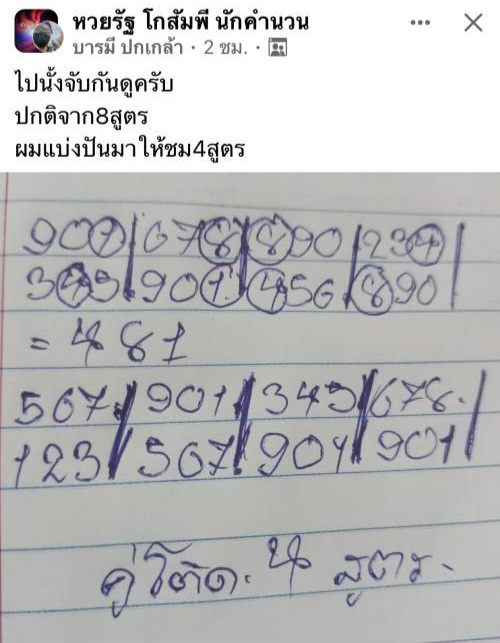 หวยรัฐ โกสัมพี นักคำนวน
บารมี ปกเกล้า · 2 ชม. ·
ไปนั้งจับกันดูครับ
ปกติจาก8สูตร
ผมแบ่งปันมาให้ชม4สูตร
901|678|890|234|
345|901|456|890|
= 481
567|901|345|678.|
123|567|901|901|
คู่โต๊ด. 4 สูตร.